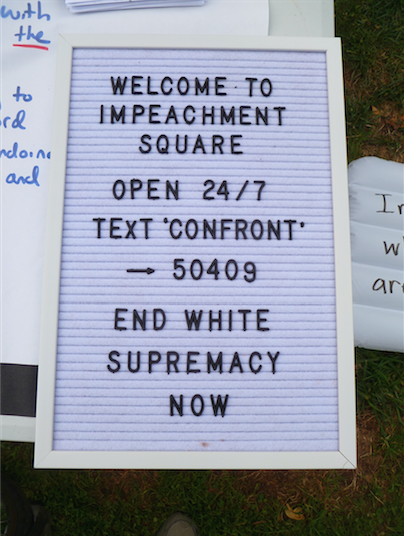 with
the
to
and
WELCOME TO
IMPEACHMENT
SQUARE
OPEN 24/7
TEXT 'CONFRONT'
→ 50409
END WHITE
SUPREMACY
NOW